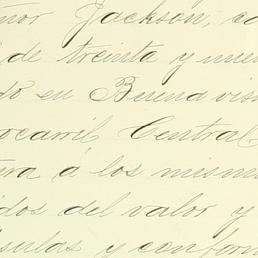 ñor Jackson, co
de treinta y nuev
do en Buena vis
rocarril Central
ra á los mismo
idos del valor y
sulas y confor